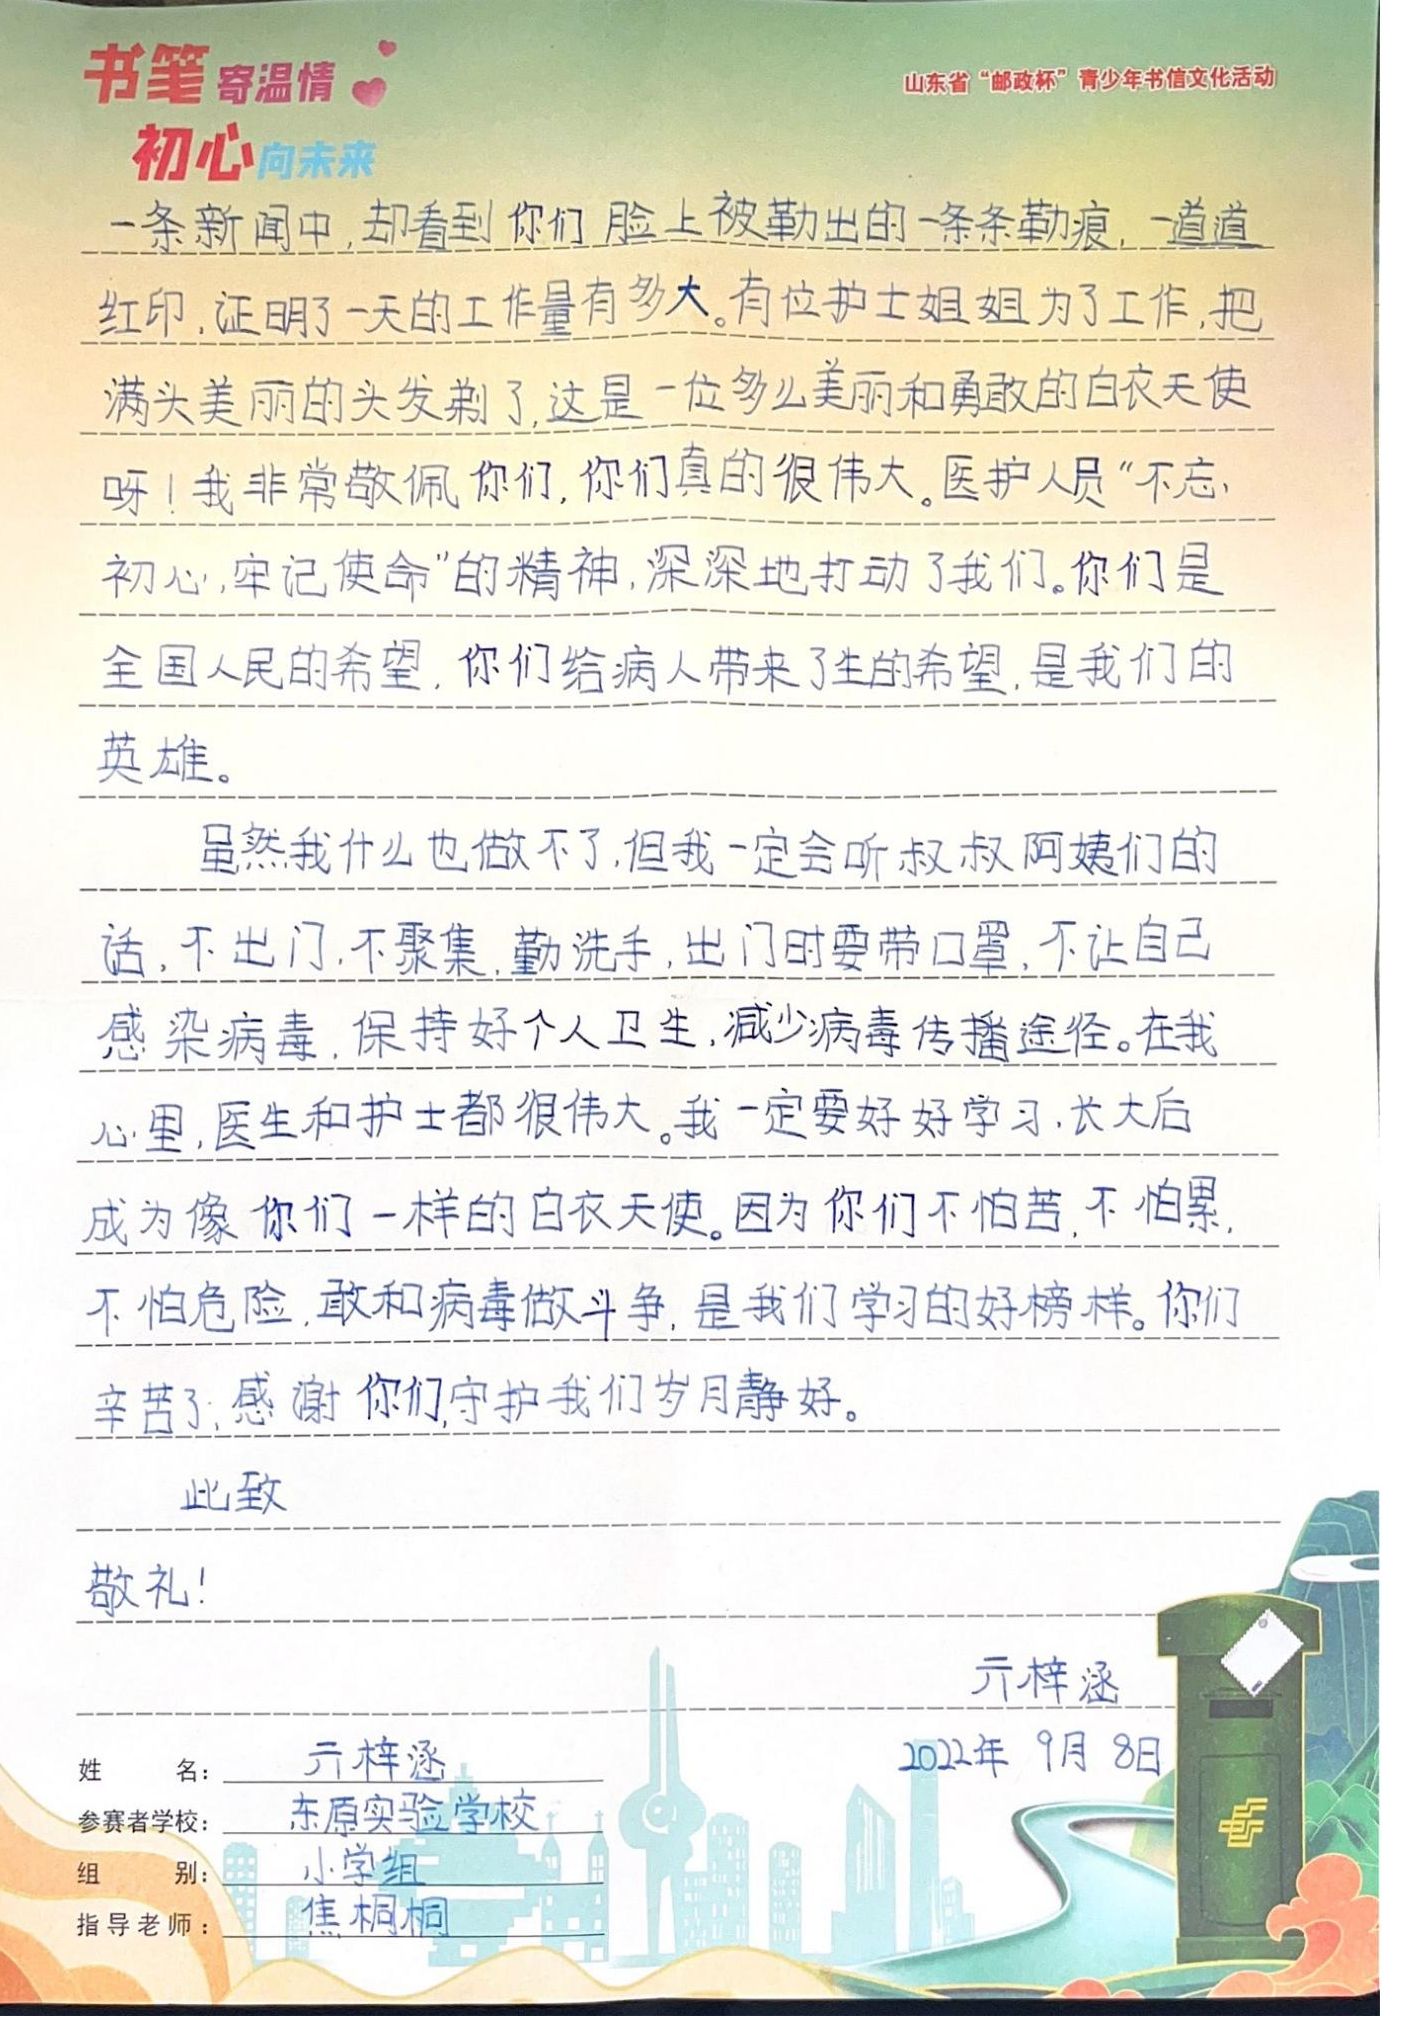 书笔寄温情
山东省“邮政杯”青少年书信文化活动
初心向未来
一条新闻中,却看到你们脸上被勒出的一条条勒痕,一道道
红印,证明了一天的工作量有多大。有位护士姐姐为了工作,把
满头美丽的头发剃了,这是一位多么美丽和勇敢的白衣天使
呀!我非常敬佩你们,你们真的很伟大。医护人员“不忘
初心,牢记使命”的精神,深深地打动了我们。你们是
全国人民的希望,你们给病人带来了生的希望,是我们的
英雄。
虽然我什么也做不了,但我一定会听叔叔阿姨们的
话,不出门,不聚集,勤洗手,出门时要带口罩,不让自己
感染病毒,保持好个人卫生,减少病毒传播途径。在我
心里,医生和护士都很伟大。我一定要好好学习,长大后
成为像你们一样的白衣天使。因为你们不怕苦,不怕累,
不怕危险,敢和病毒做斗争,是我们学习的好榜样。你们
辛苦了,感谢你们,守护我们岁月静好。
此致
敬礼!
亓梓涵
2022年9月8日
姓名:亓梓涵
参赛者学校:东原实验学校
组别:小学组
指导老师:焦桐桐